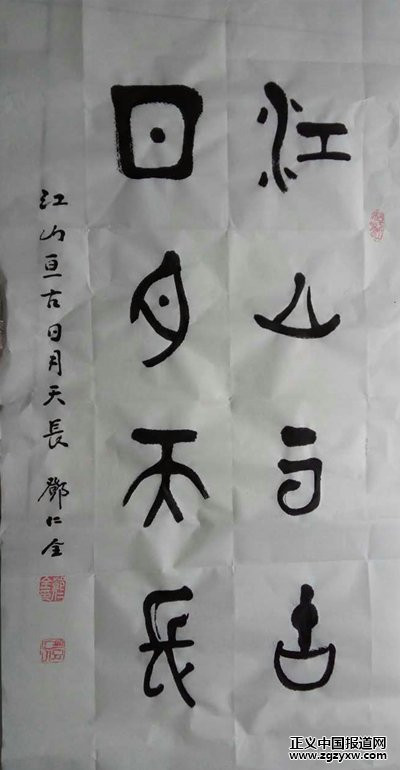 江山亘古
日月天長
江山亘古日月天長 鄧仁全
正义中国报道网
www.zgzyxw.com